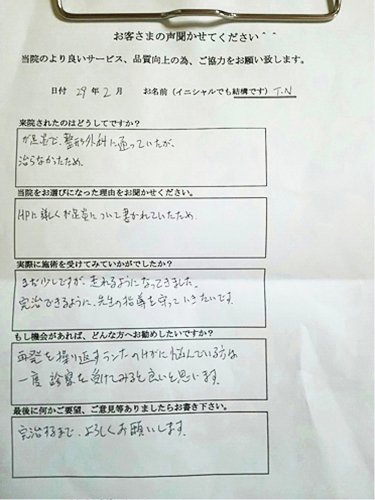 お客さまの声聞かせてください＾＾
当院のより良いサービス、品質向上の為、ご協力をお願い致します。
日付 29年2月 お名前(イニシャルでも結構です) T.N
来院されたのはどうしてですか？
が足底で、整形外科に通っていたが、
治らなかったため。
当院をお選びになった理由をお聞かせください。
HPに詳しく が足底について書かれていたため
実際に施術を受けてみていかがでしたか？
まだ少しですが、走れるようになってきました。
完治できるように、先生の指導を守っていきたいです。
もし機会があれば、どんな方へお勧めしたいですか？
再発を繰り返すランナーのケガに悩んでいる方は
一度 診察を受けてみると良いと思います。
最後に何かご要望、ご意見等ありましたらお書き下さい。
完治するまで、よろしくお願いします。